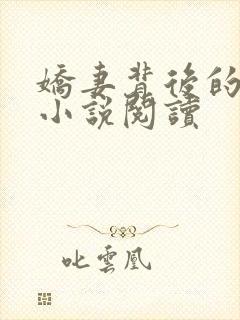 嬌妻背後的
小說閱讀
叱雲凰